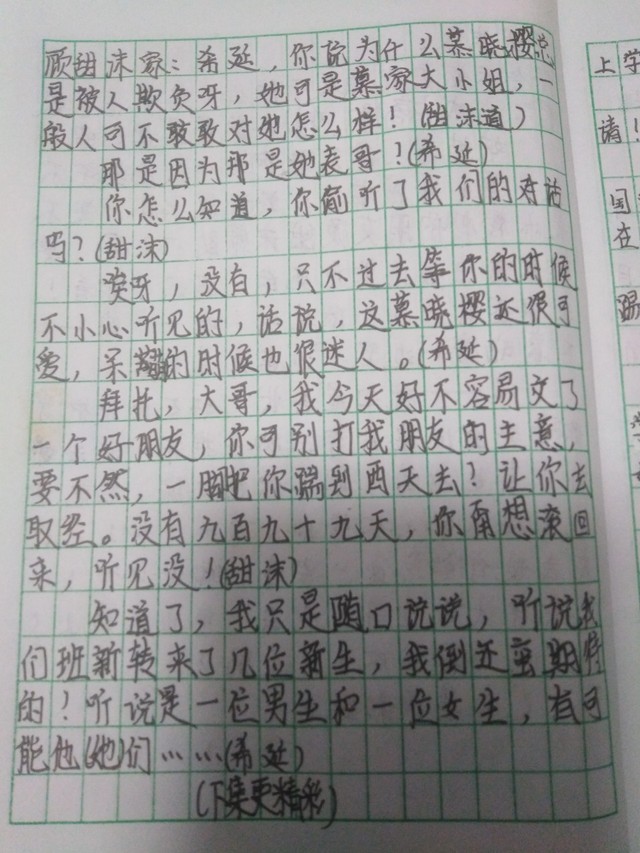 顾甜沫家：希延，你说为什么慕晓樱总
是被人欺负呀，她可是慕家大小姐，一
般人可不敢敢对她怎么样！(甜沫道)
那是因为那是她表哥？(希延)
你怎么知道，你偷听了我们的对话
吗？(甜沫)
唉呀，没有，只不过去等你的时候
不小心听见的，话说，这慕晓樱还很可
爱，呆萌的时候也很迷人。(希延)
拜托，大哥，我今天好不容易交了
一个好朋友，你可别打我朋友的主意，
要不然，一脚把你踹到西天去？让你去
取经。没有九百九十九天，你甭想滚回
来，听见没！(甜沫)
知道了，我只是随口说说，听说我
们班新转来了几位新生，我倒还蛮期待
的！听说是一位男生和一位女生，有可
能他(她)们……(希延)
(下集更精彩)
上学
请！
国
在
踢